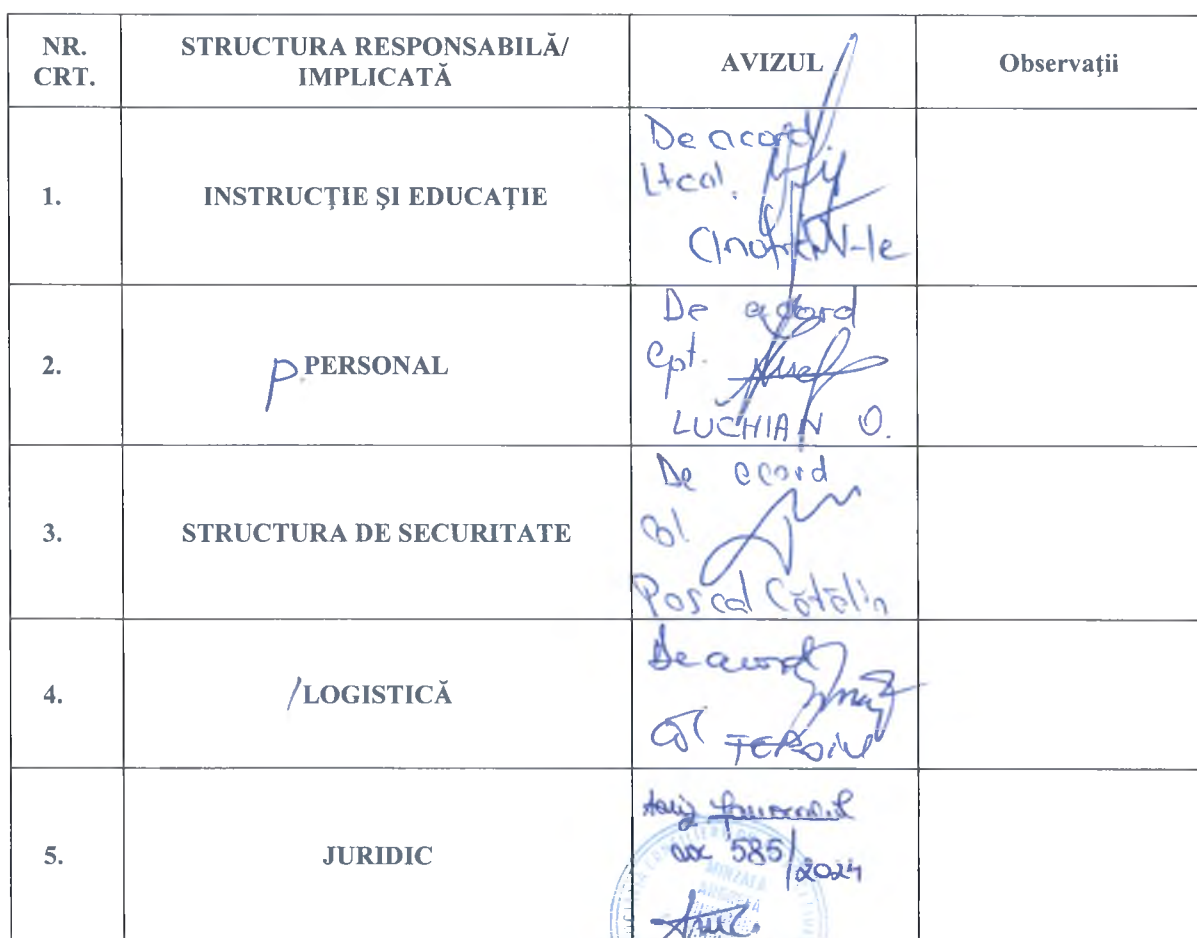 NR. CRT. STRUCTURA RESPONSABILĂ/ IMPLICATĂ AVIZUL Observaţii
1. INSTRUCŢIE ŞI EDUCAŢIE
De acord
Ltcol.
N-le
2. p PERSONAL
De acord
Cpt.
LUCHIAN O.
3. STRUCTURA DE SECURITATE
De acord
Col
Pascal Cătălin
4. /LOGISTICĂ
De acord
Col
5. JURIDIC
Aviz favorabil
585/2024